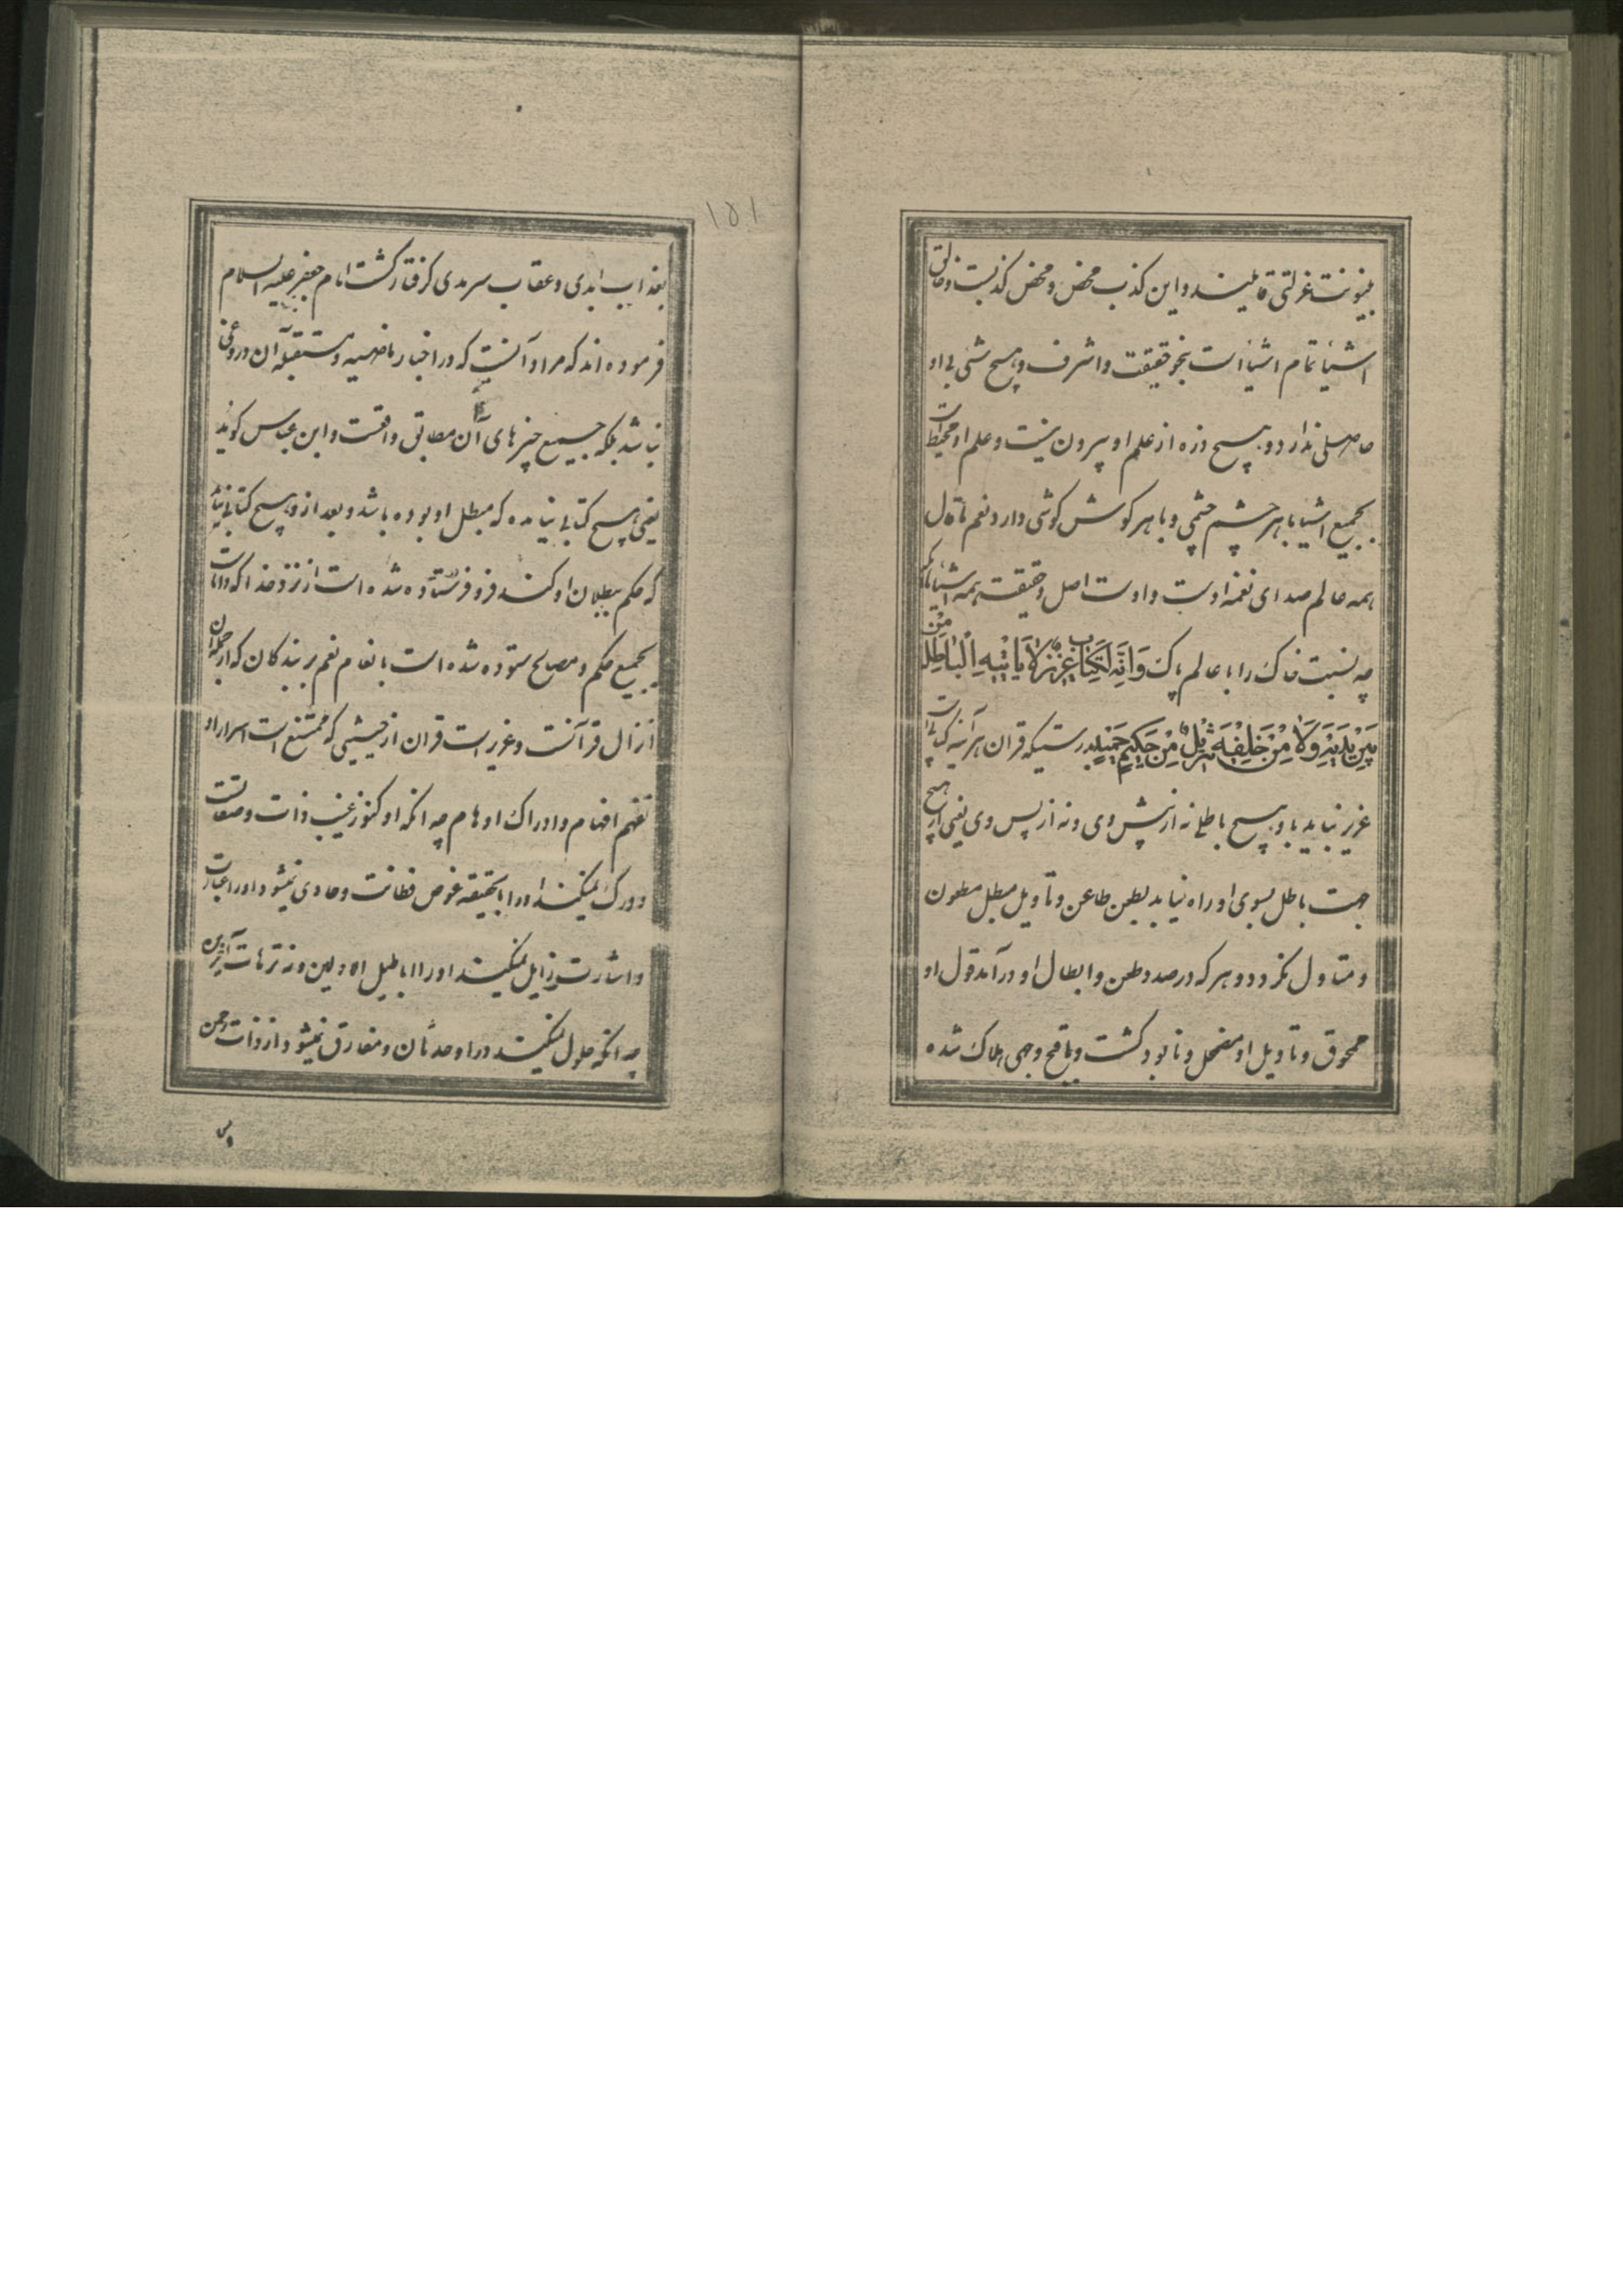 بینونت عزلتی قایلیند و این کذب محض و محض کذبست و خالق
اشیا تمام اشیا است بنحو حقیقت و اشرف و هیچ شی بی او
حاصلی ندارد و هیچ ذره از علم او بیرون نیست و علم او محیط است
بجمیع اشیا با هر چشم چشمی و با هر کوش کوشی دارد نعم ما قال
همه عالم صدای نغمه اوست و اوست اصل و حقیقت همه اشیا
چه نسبت خاک را با عالم پاک وَاِنَّهُ لَکِتابٌ عَزیزٌ لا یَاْتیهِ الْباطِلُ مِنْ
بَیْنِ یَدَیْهِ وَلا مِنْ خَلْفِهِ تَنْزیلٌ مِنْ حَکیمٍ حَمیدٍ بدرستیکه قران هر آینه کتابی است
عزیز نیاید باو هیچ باطلی نه از پیش وی و نه از پس وی یعنی از هیچ
جهت باطل بسوی او راه نیابد بطعن طاعن و تاویل مبطل مطعون
و متاول نکردد و هر که در صدد طعن و ابطال او در آمد قول او
ممحوق و تاویل او مضمحل و نابود کشت و باقبح وجهی هلاک شده
۱۵۱
بعذاب ابدی و عقاب سرمدی کرفتار کشت امام جعفر علیه السلام
فرموده اند که مراد آنست که در اخبار ماضیه و مستقبله آن دروغی
نباشد بلکه جمیع چیزهای آن مطابق واقعست و ابن عباس کوید
یعنی هیچ کتابی نیامده که مبطل او بوده باشد و بعد از و هیچ کتابی نیاید
که حکم ببطلان او کند فرو فرستاده شده است از نزد خدا که دانا است
بجمیع حکم و مصالح ستوده شده است بانعام نعم بر بندکان که از جمله آن
انزال قرآنست و عزیز است قران از حیثیتی که ممتنع است اسرار او
تفهم افهام و ادراک اوهام چه انکه او کنوز غیب ذات و صفات
و درک نمیکند او را بحقیقه غوص فطانت و حاوی نمیشود او را عبارت
و اشارت و زایل نمیکند او را اباطیل اولین و نه ترهات آخرین
چه انکه حلول نمیکند در او حدثان و مفارق نمیشود از ذات رحمن